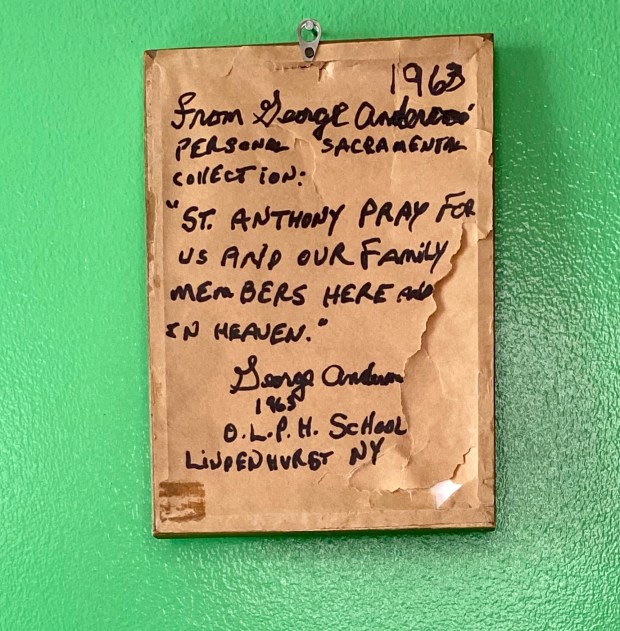 1963
From George Anderson's
PERSONAL SACRAMENTAL
COLLECTION:
"ST. ANTHONY PRAY FOR
US AND OUR FAMILY
MEMBERS HERE AND
IN HEAVEN."
George Anderson
O.L.P.H. SCHOOL
LINDENHURST NY